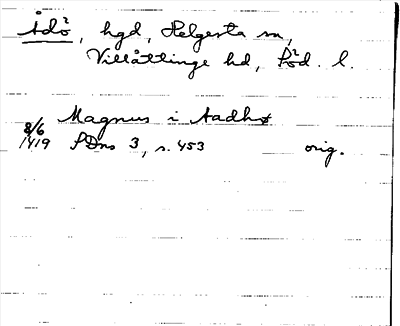 Ådö², hgd, Helgesta sn,
Villåttinge hd, Söd. l.
Magnus i Aadhø
8/6
1419 SDns 3, s. 453 orig.